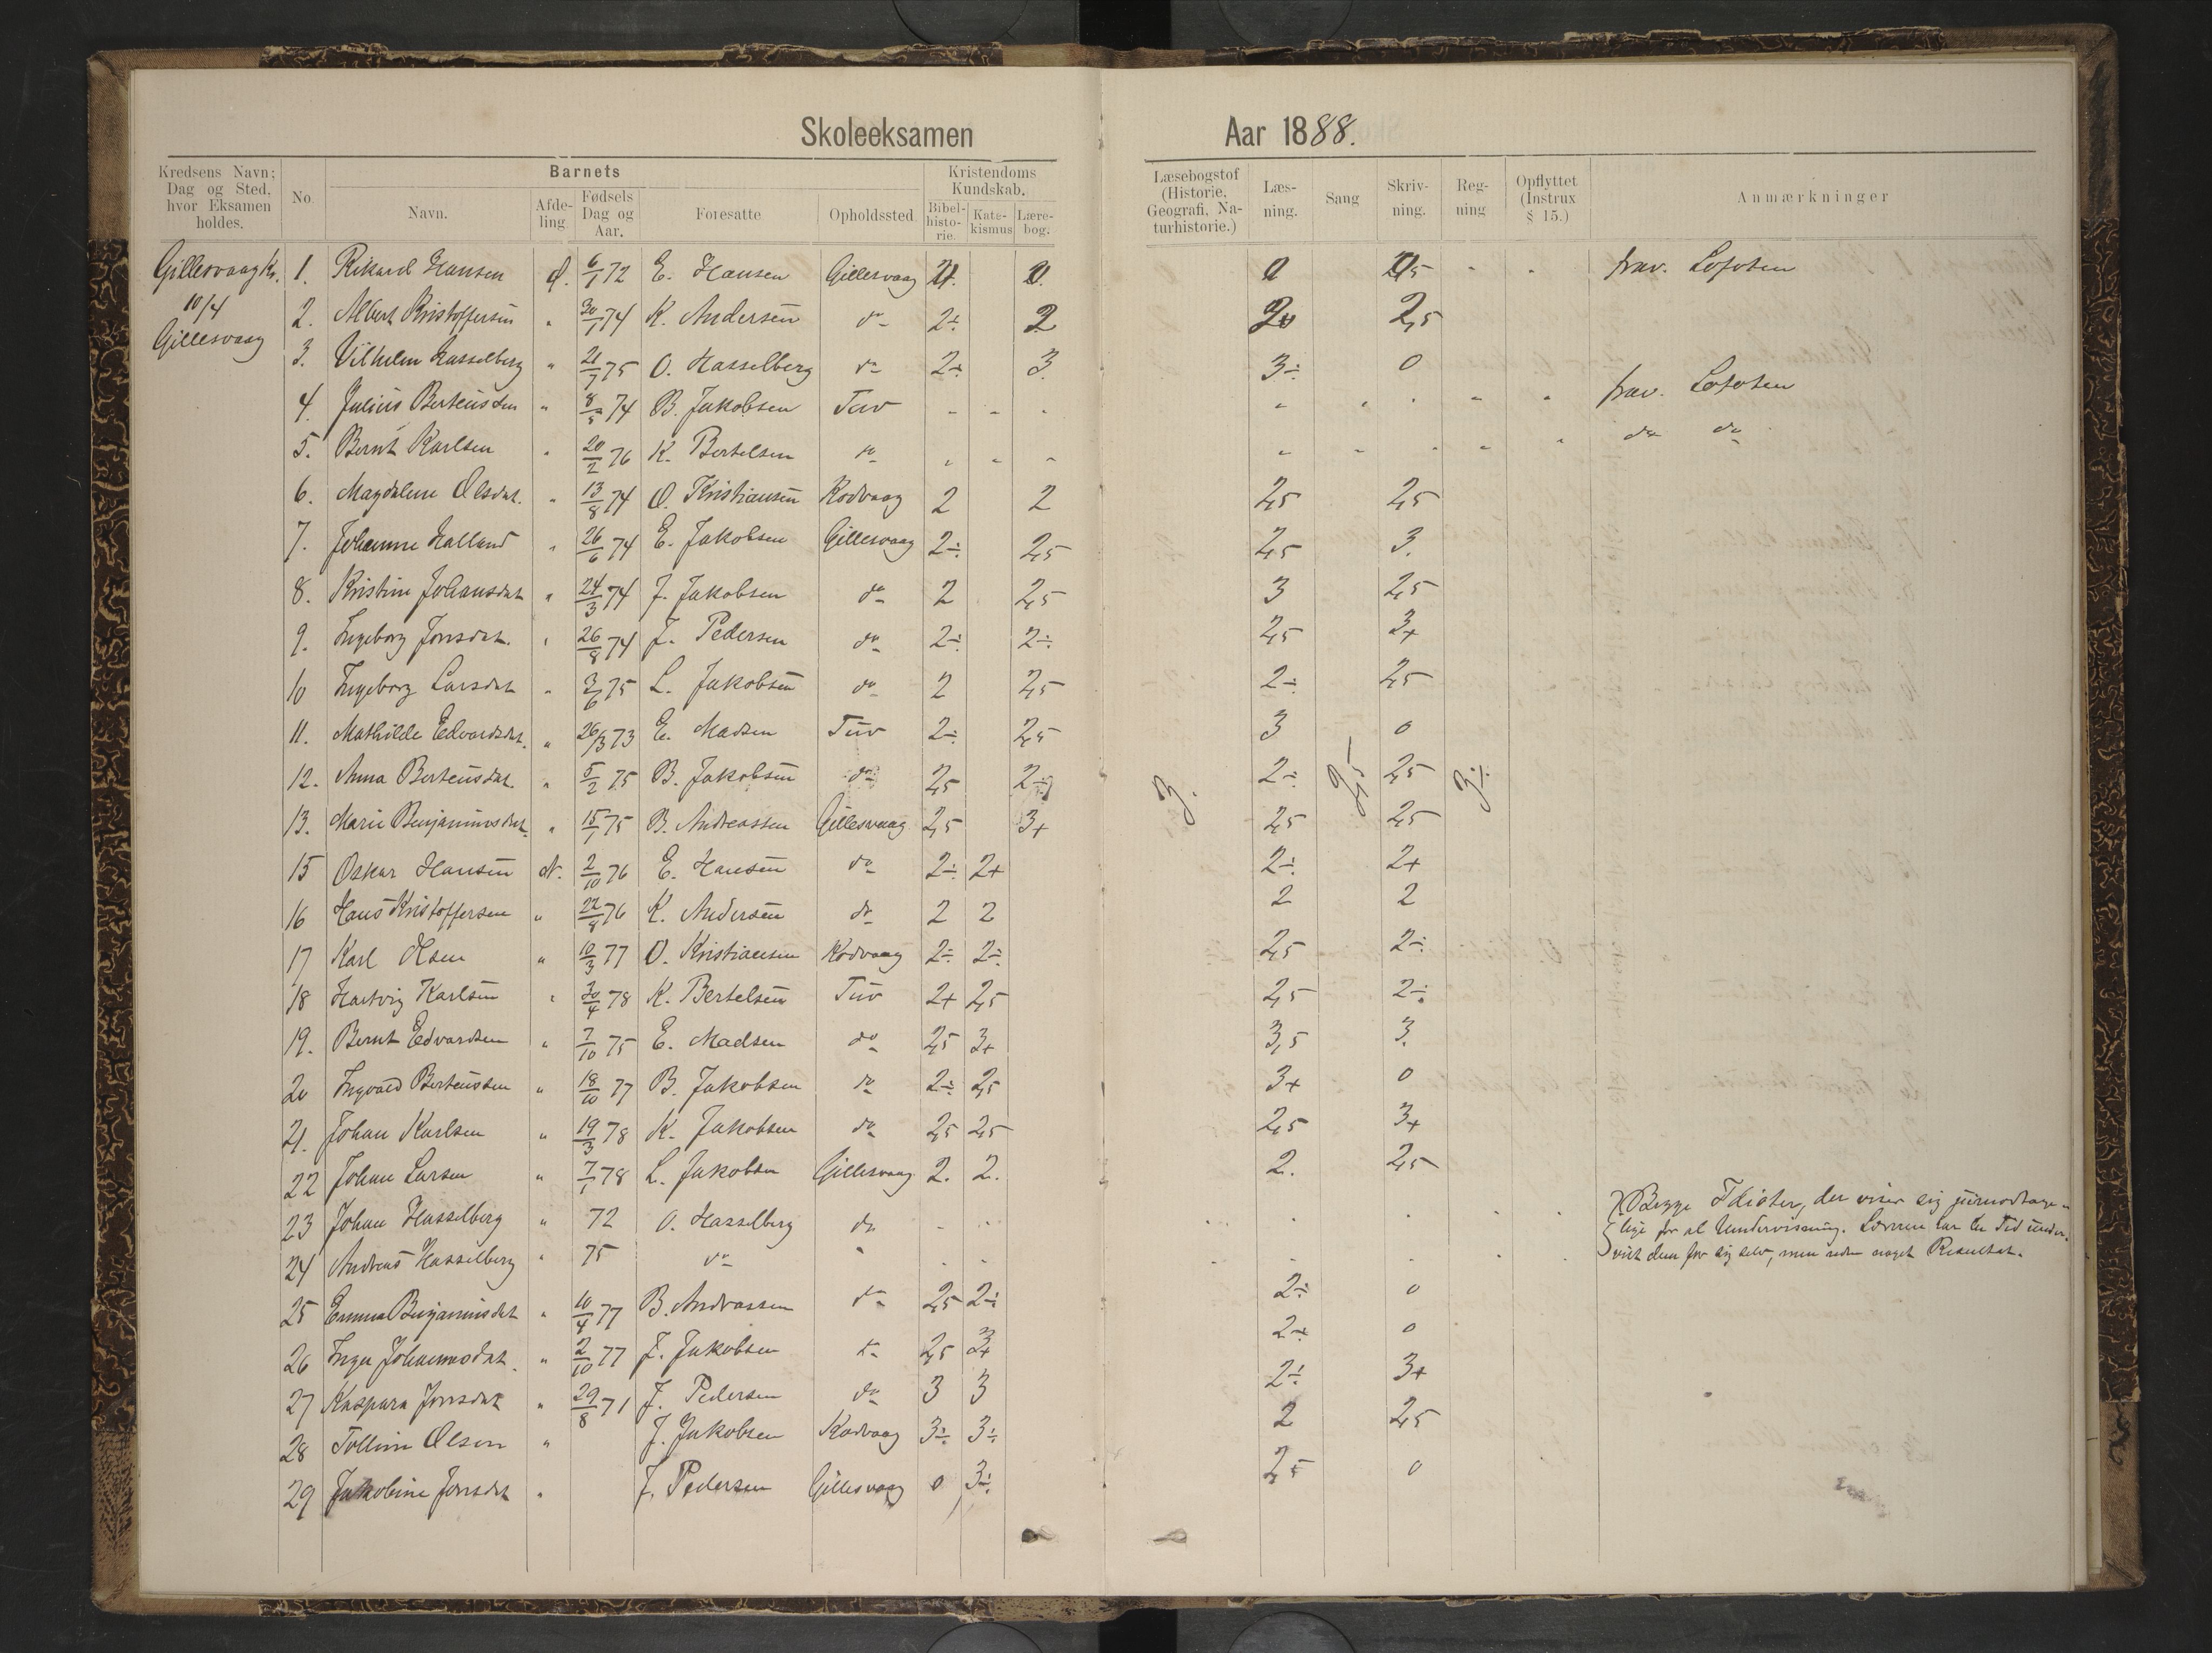 Skoleeksamen Aar 1888.
Kredsens Navn; Dag og Sted, hvor Eksamen holdes. No. Barnets Navn. Afdeling Fødsels Dag og Aar. Foresatte Opholdssted Kristendoms Kundskab. Bibelhistorie. Katekismus Lærebog. Læsebogstof (Historie, Geografi, Naturhistorie.) Læsning. Sang Skrivning. Regning Opflyttet (Instrux § 15.) Anmærkninger
Gillesvaag Kr. 1. Rikard Hansen Ø. 6/1 72 E. Hansen Gillesvaag - - frav. Lofoten
10/4 2. Albert Kristoffersen " 30/1 74 K. Andersen do 2÷ 2 2,5
Gillesvaag 3. Vilhelm Hasselberg " 21/7 75 O. Hasselberg do 2÷ 3. 3÷ 0
4. Julius Berteussen " 74 B. Jakobsen Tuv - - - - - - - - frav. Lofoten
5. Bernt Karlsen " 20/2 76 K. Bertelsen do - - - - - - - - do do
6. Magdalene Olsdat. " 13/8 74 O. Kristiansen Kodvaag 2 2 2,5 2,5
7. Johanne Halland " 26/6 74 E. Jakobsen Gillesvaag 2÷ 2,5 2,5 3.
8. Kristine Johansdat " 24/3 74 J. Jakobsen do 2 2,5 3 2,5
9. Ingeborg Jonsdat. " 26/8 74 J. Pedersen do 2÷ 2÷ 2,5 3+
10 Ingeborg Larsdat " 3/6 75 L. Jakobsen do 2 2,5 2÷ 2,5
11. Mathilde Edvardsdat. " 26/3 73 E. Madsen Tuv 2÷ 2,5 3 0
12. Anna Berteusdat. " 5/2 75 B. Jakobsen do 2,5 2÷ 3. 2÷ 2,5 2,5 3÷
13. Marie Benjaminsdat. " 15/1 75 B. Andreassen Gillesvaag 2,5 3+ 2,5 2,5
15 Oskar Hansen N. 2/10 76 E. Hansen do 2÷ 2+ 2÷ 2+
16 Hans Kristoffersen " 22/8 76 K. Andersen do 2 2 2 2
17 Karl Olsen " 10/3 77 O. Kristiansen Kodvaag 2÷ 2÷ 2,5 2÷
18 Hartvig Karlsen " 30/4 78 K. Bertelsen Tuv 2+ 2,5 2,5 2÷
19. Bernt Edvardsen " 7/10 75 E. Madsen do 2,5 3+ 3,5 3.
20 Ingvald Berteussen " 18/10 77 B. Jakobsen do 2÷ 2,5 3+ 0
21. Johan Karlsen " 19/3 78 K. Jakobsen do 2,5 2,5 2,5 3+
22 Johan Larsen " 7/1 78 L. Jakobsen Gillesvaag 2. 2. 2. 2,5
23 Johan Hasselberg " 72 O. Hasselberg do - - - - - - - Begge Idioter, der viser sig
24 Andreas Hasselberg " 75 do " - - - - - - - lige for al Undervisning. Læreren har en Tid under-
vist dem for sig selv, men uden noget Resultat.
25 Emma Benjaminsdat " 10/4 77 B. Andreassen do 2,5 2÷ 2÷ 0
26 Inga Johannesdat. " 2/10 77 J. Jakobsen do 2,5 3+ 2÷ 0
27 Kaspara Jonsdat " 29/8 71 J. Pedersen do 3 3 2÷ 3+
28 Olsen " J. Jakobsen Kodvaag 3÷ 3÷ 2 2,5
29 Jakobine Jonsdat " J. Pedersen Gillesvaag 0 3÷ 2,5 0